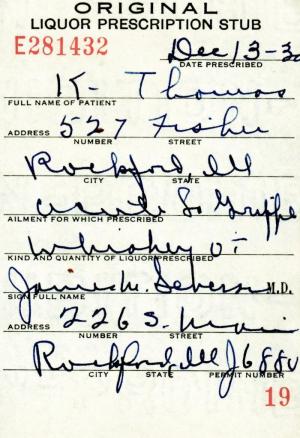 ORIGINAL
LIQUOR PRESCRIPTION STUB
E281432
Dec 13-30
DATE PRESCRIBED
K- Thomas
FULL NAME OF PATIENT
527 Fisher
ADDRESS NUMBER STREET
Rockford, Ill
CITY STATE
acute La Grippe
AILMENT FOR WHICH PRESCRIBED
Whiskey
KIND AND QUANTITY OF LIQUOR PRESCRIBED
James M. M.D.
SIGN FULL NAME
226 S. Main
ADDRESS NUMBER STREET
Rockford, Ill
CITY STATE PERMIT NUMBER
19